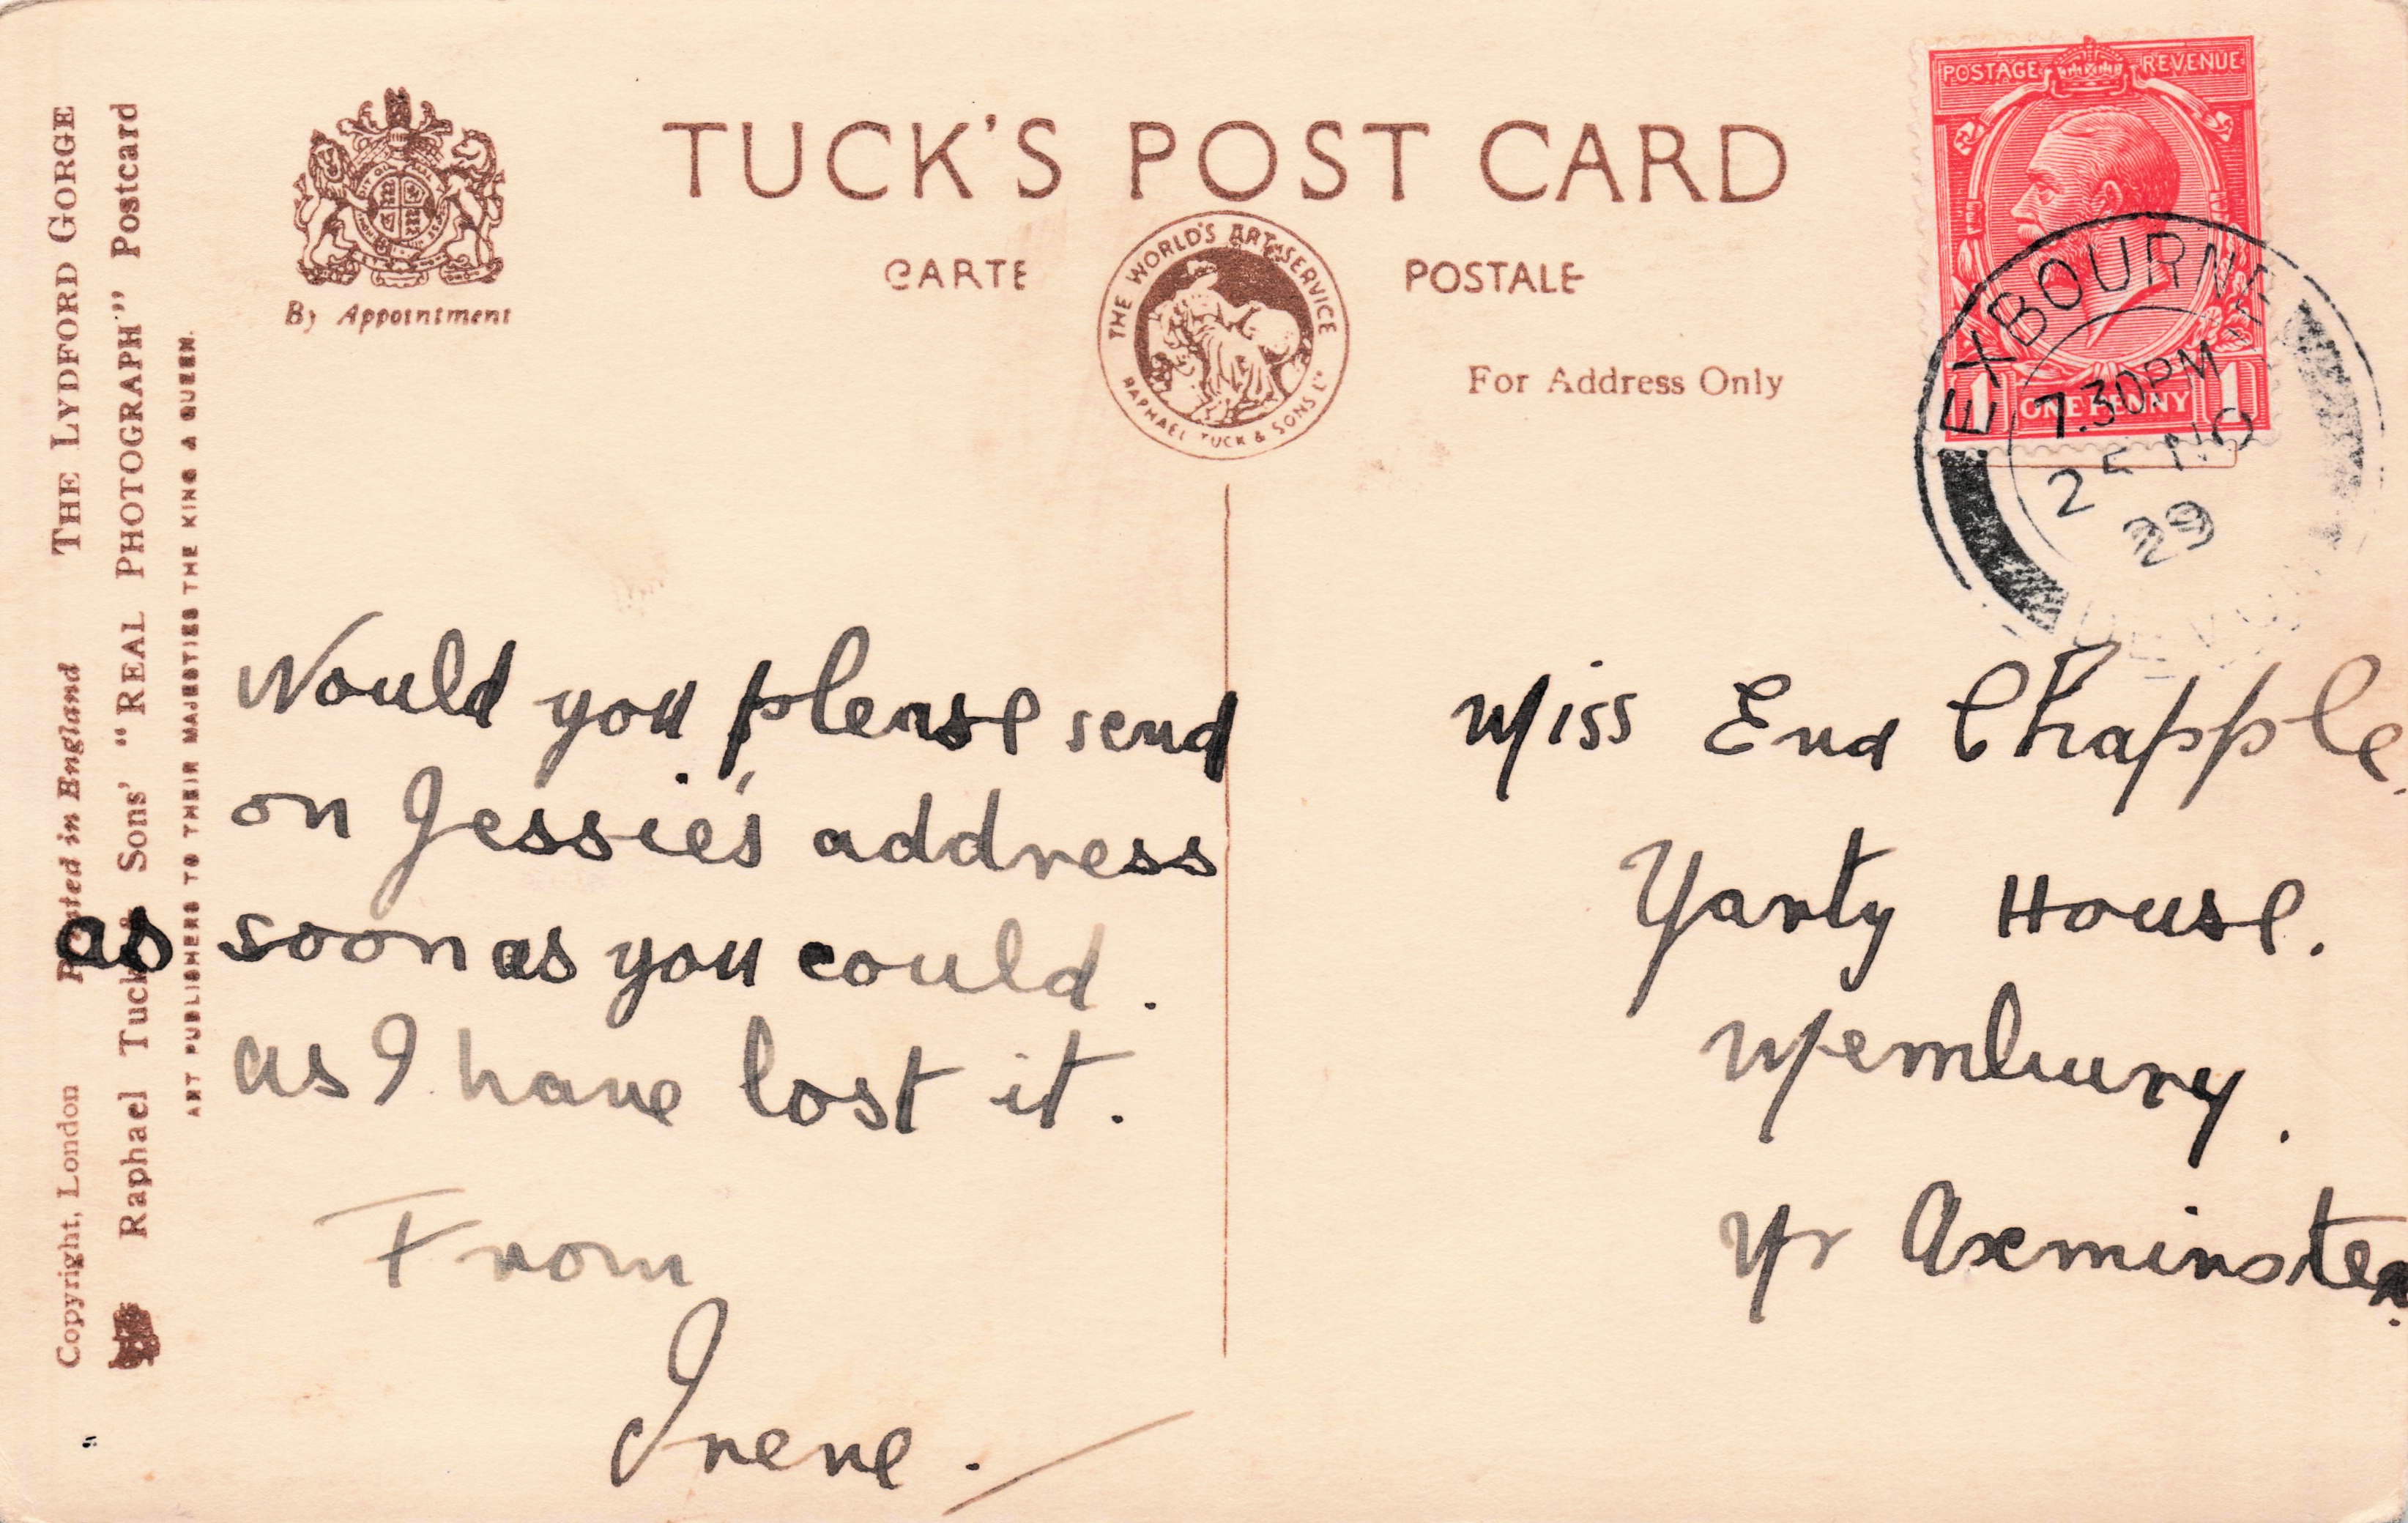 TUCK'S POST CARD
CARTE POSTALE
By Appointment
THE WORLD'S ART SERVICE
RAPHAEL TUCK & SONS LD
For Address Only
POSTAGE REVENUE
1 ONE PENNY 1
EXBOURNE
7.30PM
25 NO
29
DEVON
THE LYDFORD GORGE
Raphael Tuck & Sons' "REAL PHOTOGRAPH" Postcard
ART PUBLISHERS TO THEIR MAJESTIES THE KING & QUEEN.
Copyright, London Printed in England
Would you please send
on Jessie's address
as soon as you could.
as I have lost it.
From
Irene.
Miss Chapple.
Yarty House.
Membury.
Nr Axminster.